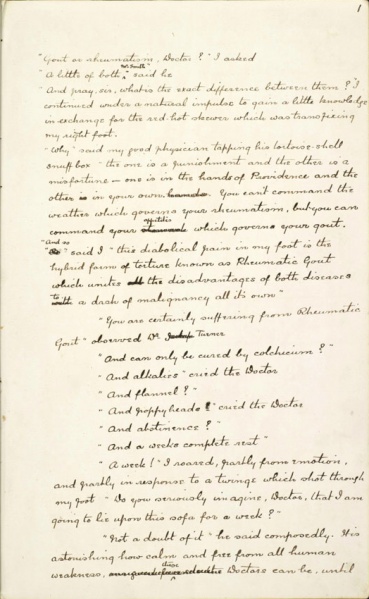 1
"Gout or rheumatism, Doctor?" I asked
"A little of both, Mr. Smith" said he
"And pray, sir, what is the exact difference between them?" I
continued under a natural impulse to gain a little knowledge
in exchange for the red hot skewer which was transfixing
my right foot.
"Why" said my good physician tapping his tortoise-shell
snuff box "the one is a punishment and the other is a
misfortune — one is in the hands of Providence and the
other is in your own. You can't command the
weather which governs your rheumatism, but you can
command your appetite which governs your gout.
"And so" said I "this diabolical pain in my foot is the
hybrid form of torture known as Rheumatic Gout
which unites the disadvantages of both diseases
to a dash of malignancy all its own"
"You are certainly suffering from Rheumatic
Gout" observed Dr. Turner
"And can only be cured by colchicum?"
"And alkalies" cried the Doctor
"And flannel?"
"And poppyheads" cried the Doctor
"And abstinence?"
"And a weeks complete rest"
"A week!" I roared, partly from emotion,
and partly in response to a twinge which shot through
my foot "Do you seriously imagine, Doctor, that I am
going to lie upon this sofa for a week?"
"Not a doubt of it" he said composedly. It is
astonishing how calm and free from all human
weakness, these Doctors can be, until